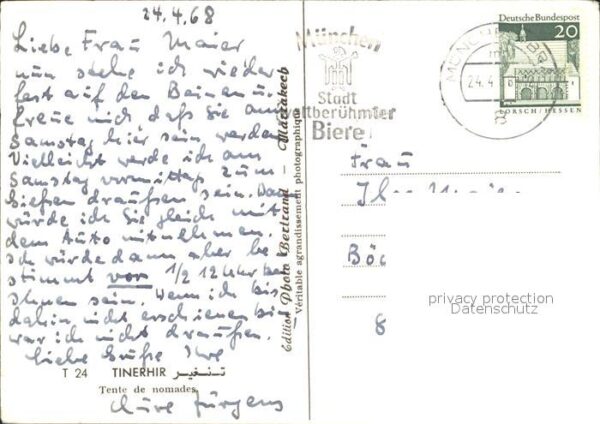 24.4.68
Liebe Frau Maier
nun stehe ich wieder
fest auf den Beinen u.
freue mich daß Sie am
Samstag hier sein werden
Vielleicht werde ich am
Samstag vormittag zum
Gießen draußen sein. Dann
würde ich Sie gleich mit
dem Auto mitnehmen.
Ich würde dann aber be
stimmt vor 1/2 12 Uhr bei
Ihnen sein. Wenn ich bis
dahin nicht erschienen bin
war ich nicht draußen.
Liebe Grüße Ihre
Jürgens
T 24 TINERHIR تـنـغـيـر
Tente de nomades
Edition Photo Bertrand - Marrakech
Véritable agrandissement photographique
München
Stadt
weltberühmter
Biere
24.4
8
Deutsche Bundespost
20
LORSCH/HESSEN
Frau
Böc
8
privacy protection
Datenschutz